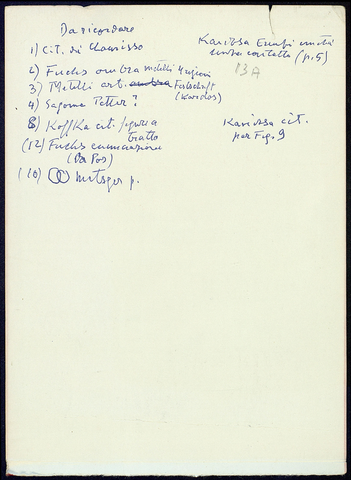 Da ricordare
1) Cit. di Kanizsa
2) Fuchs ombra metelli 4 regioni
3) Metelli art. ombra Festschrift
(Kardos)
4) Sagoma Petter?
8) Koffka cit. figura
tratto
(12) Fuchs
(Da Pos)
(10) Metzger p.
Kanizsa Esempi
(p. 5)
13A
Kanizsa cit.
per Fig. 9